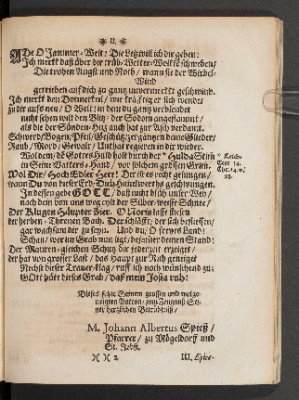 II.
ADe O Jammer-Welt; Die Letz will ich dir geben:
Ich merkt daß über dir trüb-Wetter-Wolken schweben/
Die trohen Angst und Noth/ wann sie der Wirbel-
Wind
getrieben auf dich zu gantz unvermerckt geschwind.
Ich merckt den Donnerkeul/ wie kräfftig er sich wendet
zu dir auf neu/ O Welt; in dem du gantz verblendet
nicht sehen wilt den Blitz/ der Sodom angeflammt
als die der Sünden-Hitz auch hat zur Asch verdamt.
Schwerd/ Bogen/ Pfeil/ Geschütz/ zergäntzen deine Glieder/
Raub/ Mord/ Gewalt/ Unthat regieren in dir wieder.
Wol dem/ deß Gottes Huld hat durch der Hulda Stim̃
in Seine Vatters-Hand/ vor solchem grossen Grim̃.
Wol Dir/ Hoch Edler Herr! Der ist es recht gelungen/
wann Du von dieser Erd/ Dich Himmelwerths geschwungen.
In dessen gebe GOTT/ daß nicht bald unser Wein/
nach dem von uns weg eylt der Silber-weisse Schnee/
Der Klugen Häupter Zier. O Noris lasse fliessen
der herben-Thränen Bach.
gar wachsam dir zu seyn. Und du/ O freyes Land;
Schau/ wer im Grab nun ligt/ bejamre deinen Stand:
Der Mauren-gleichen Schutz dir jederzeit erzeiget/
der hat von grosser Last/ das Haupt zur Ruh geneiget
Nechst dieser Trauer-klag/ ruff ich noch wünschend zu:
GOtt hüte dieses Grab/ daß mein Josia ruh!
Dieses setzte Seinem grossen und wolge-
neigten Patron/ zum Zeugnuß Sei-
ner hertzlichen Betrübnuß/
M. Johann Albertus Spieß/
Pfarrer/ zu Mögeldorff und
St. Jobst.
)( )( 2
III. Epice-